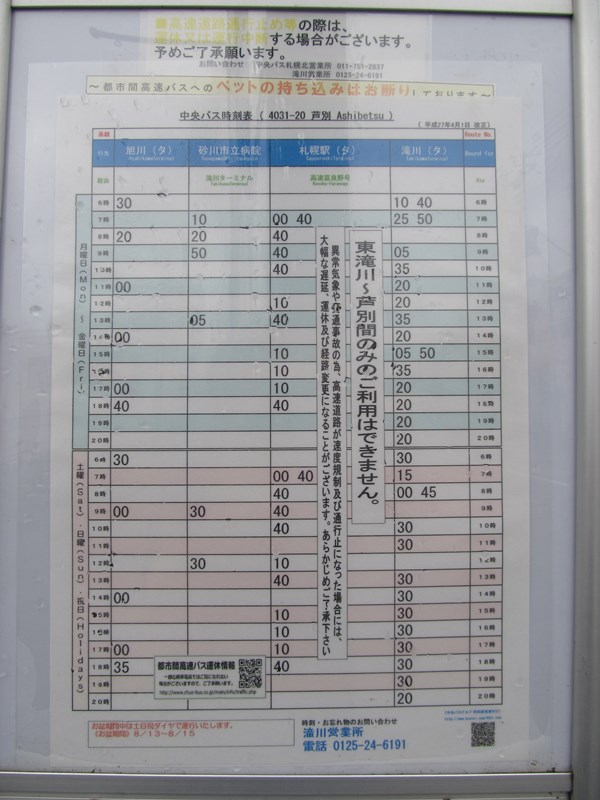 ■高速道路通行止め等の際は、
運休又は運行中断する場合がございます。
予めご了承願います。
お問い合わせ 中央バス札幌北営業所 011-751-2837
滝川営業所 0125-24-6191
～都市間高速バスへのペットの持ち込みはお断りしております～
中央バス時刻表 ( 4031-20 芦別 Ashibetsu )
( 平成27年4月1日 改正)
系統 Route No.
行先 旭川 (タ) 砂川市立病院 札幌駅 (タ) 滝川 (タ) Bound for
経由 滝川ターミナル 高速富良野号 Via
月曜日(Mon) ～ 金曜日(Fri)
6時 30 10 40 6時
7時 10 00 40 25 50 7時
8時 20 20 40 8時
9時 50 40 05 9時
10時 40 35 10時
11時 00 20 11時
12時 10 20 12時
13時 05 40 35 13時
14時 00 20 14時
15時 10 05 50 15時
16時 10 35 16時
17時 00 10 20 17時
18時 40 40 20 18時
19時 20 19時
20時 20 20時
土曜(Sat)・日曜(Sun)・祝日(Holidays)
6時 30 30 6時
7時 00 40 15 7時
8時 40 00 45 8時
9時 00 30 40 9時
10時 40 30 10時
11時 30 11時
12時 30 10 12時
13時 40 30 13時
14時 00 30 14時
15時 10 30 15時
16時 10 30 16時
17時 00 10 30 17時
18時 35 40 30 18時
19時 30 19時
20時 20 20時
東滝川～芦別間のみのご利用はできません。
異常気象や交通事故の為、高速道路が速度規制及び通行止になった場合には、
大幅な遅延、運休及び経路変更になることがございます。あらかじめご了承下さい
都市間高速バス運休情報
場合がございますので、ご了承願います。
http://www.chuo-bus.co.jp/main/info/traffic.php
お盆期間中は土日祝ダイヤで運行いたします。
(お盆期間) 8/13～8/15
時刻・お忘れ物のお問い合わせ
滝川営業所
電話 0125-24-6191